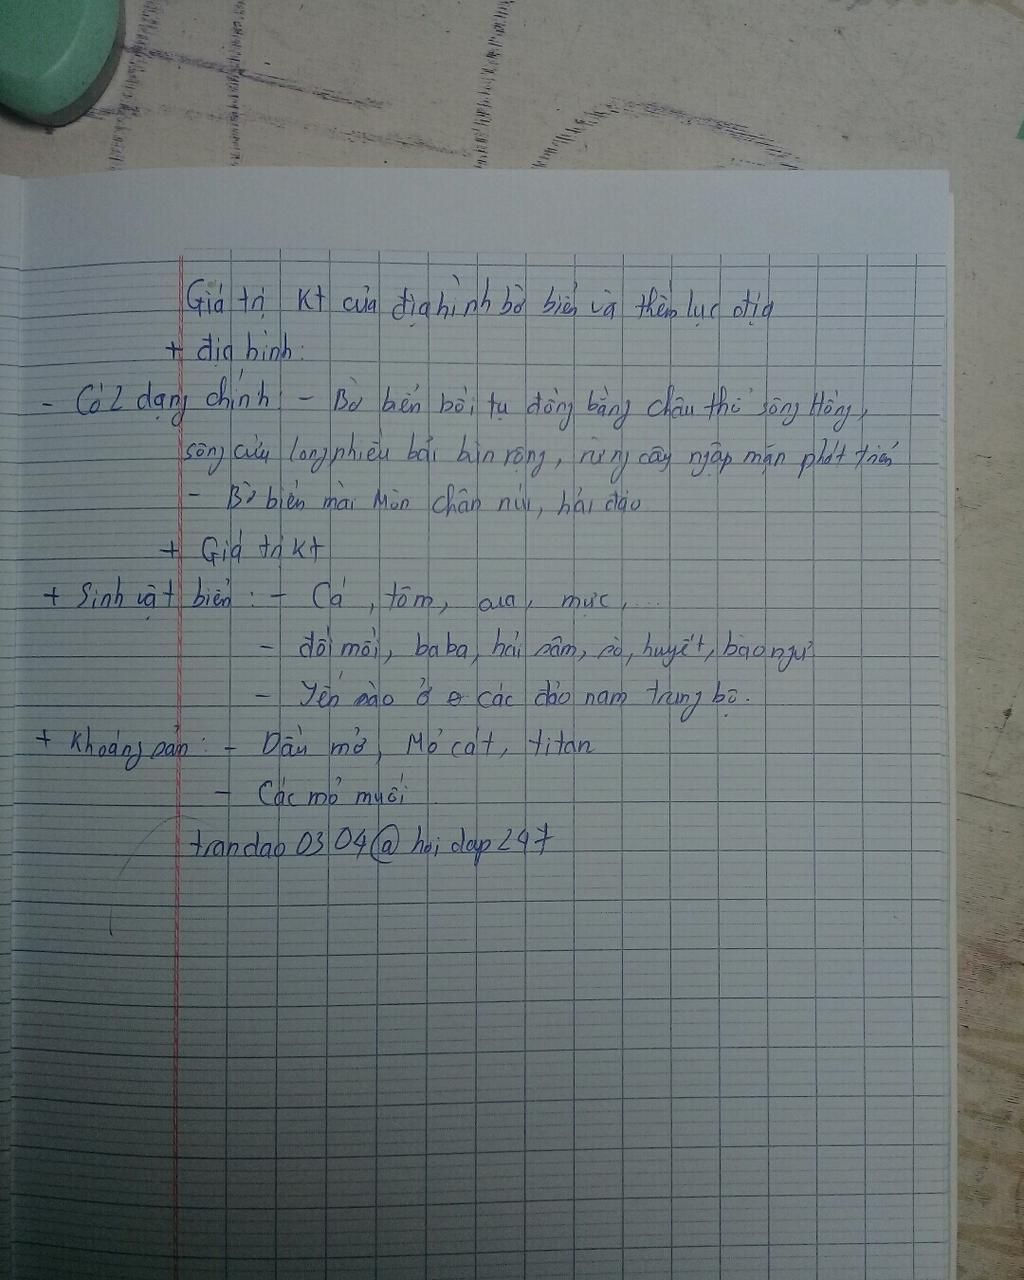 Giá trị kt của địa hình bờ biển và thềm lục địa
+ địa hình:
- Có 2 dạng chính: - Bờ biển bồi tụ đồng bằng châu thổ sông Hồng,
sông cửu long nhiều bãi bùn rộng, rừng cây ngập mặn phát triển
- Bờ biển mài mòn chân núi, hải đảo
+ Giá trị kt
+ Sinh vật biển: - Cá, tôm, cua, mực,...
- đồi mồi, ba ba, hải sâm, sò, huyết, bào ngư
- Yến sào ở các đảo nam trung bộ.
+ Khoáng sản: - Dầu mở, Mỏ cát, titan
- Các mỏ muối
trandao 0304@ hoi dap 247